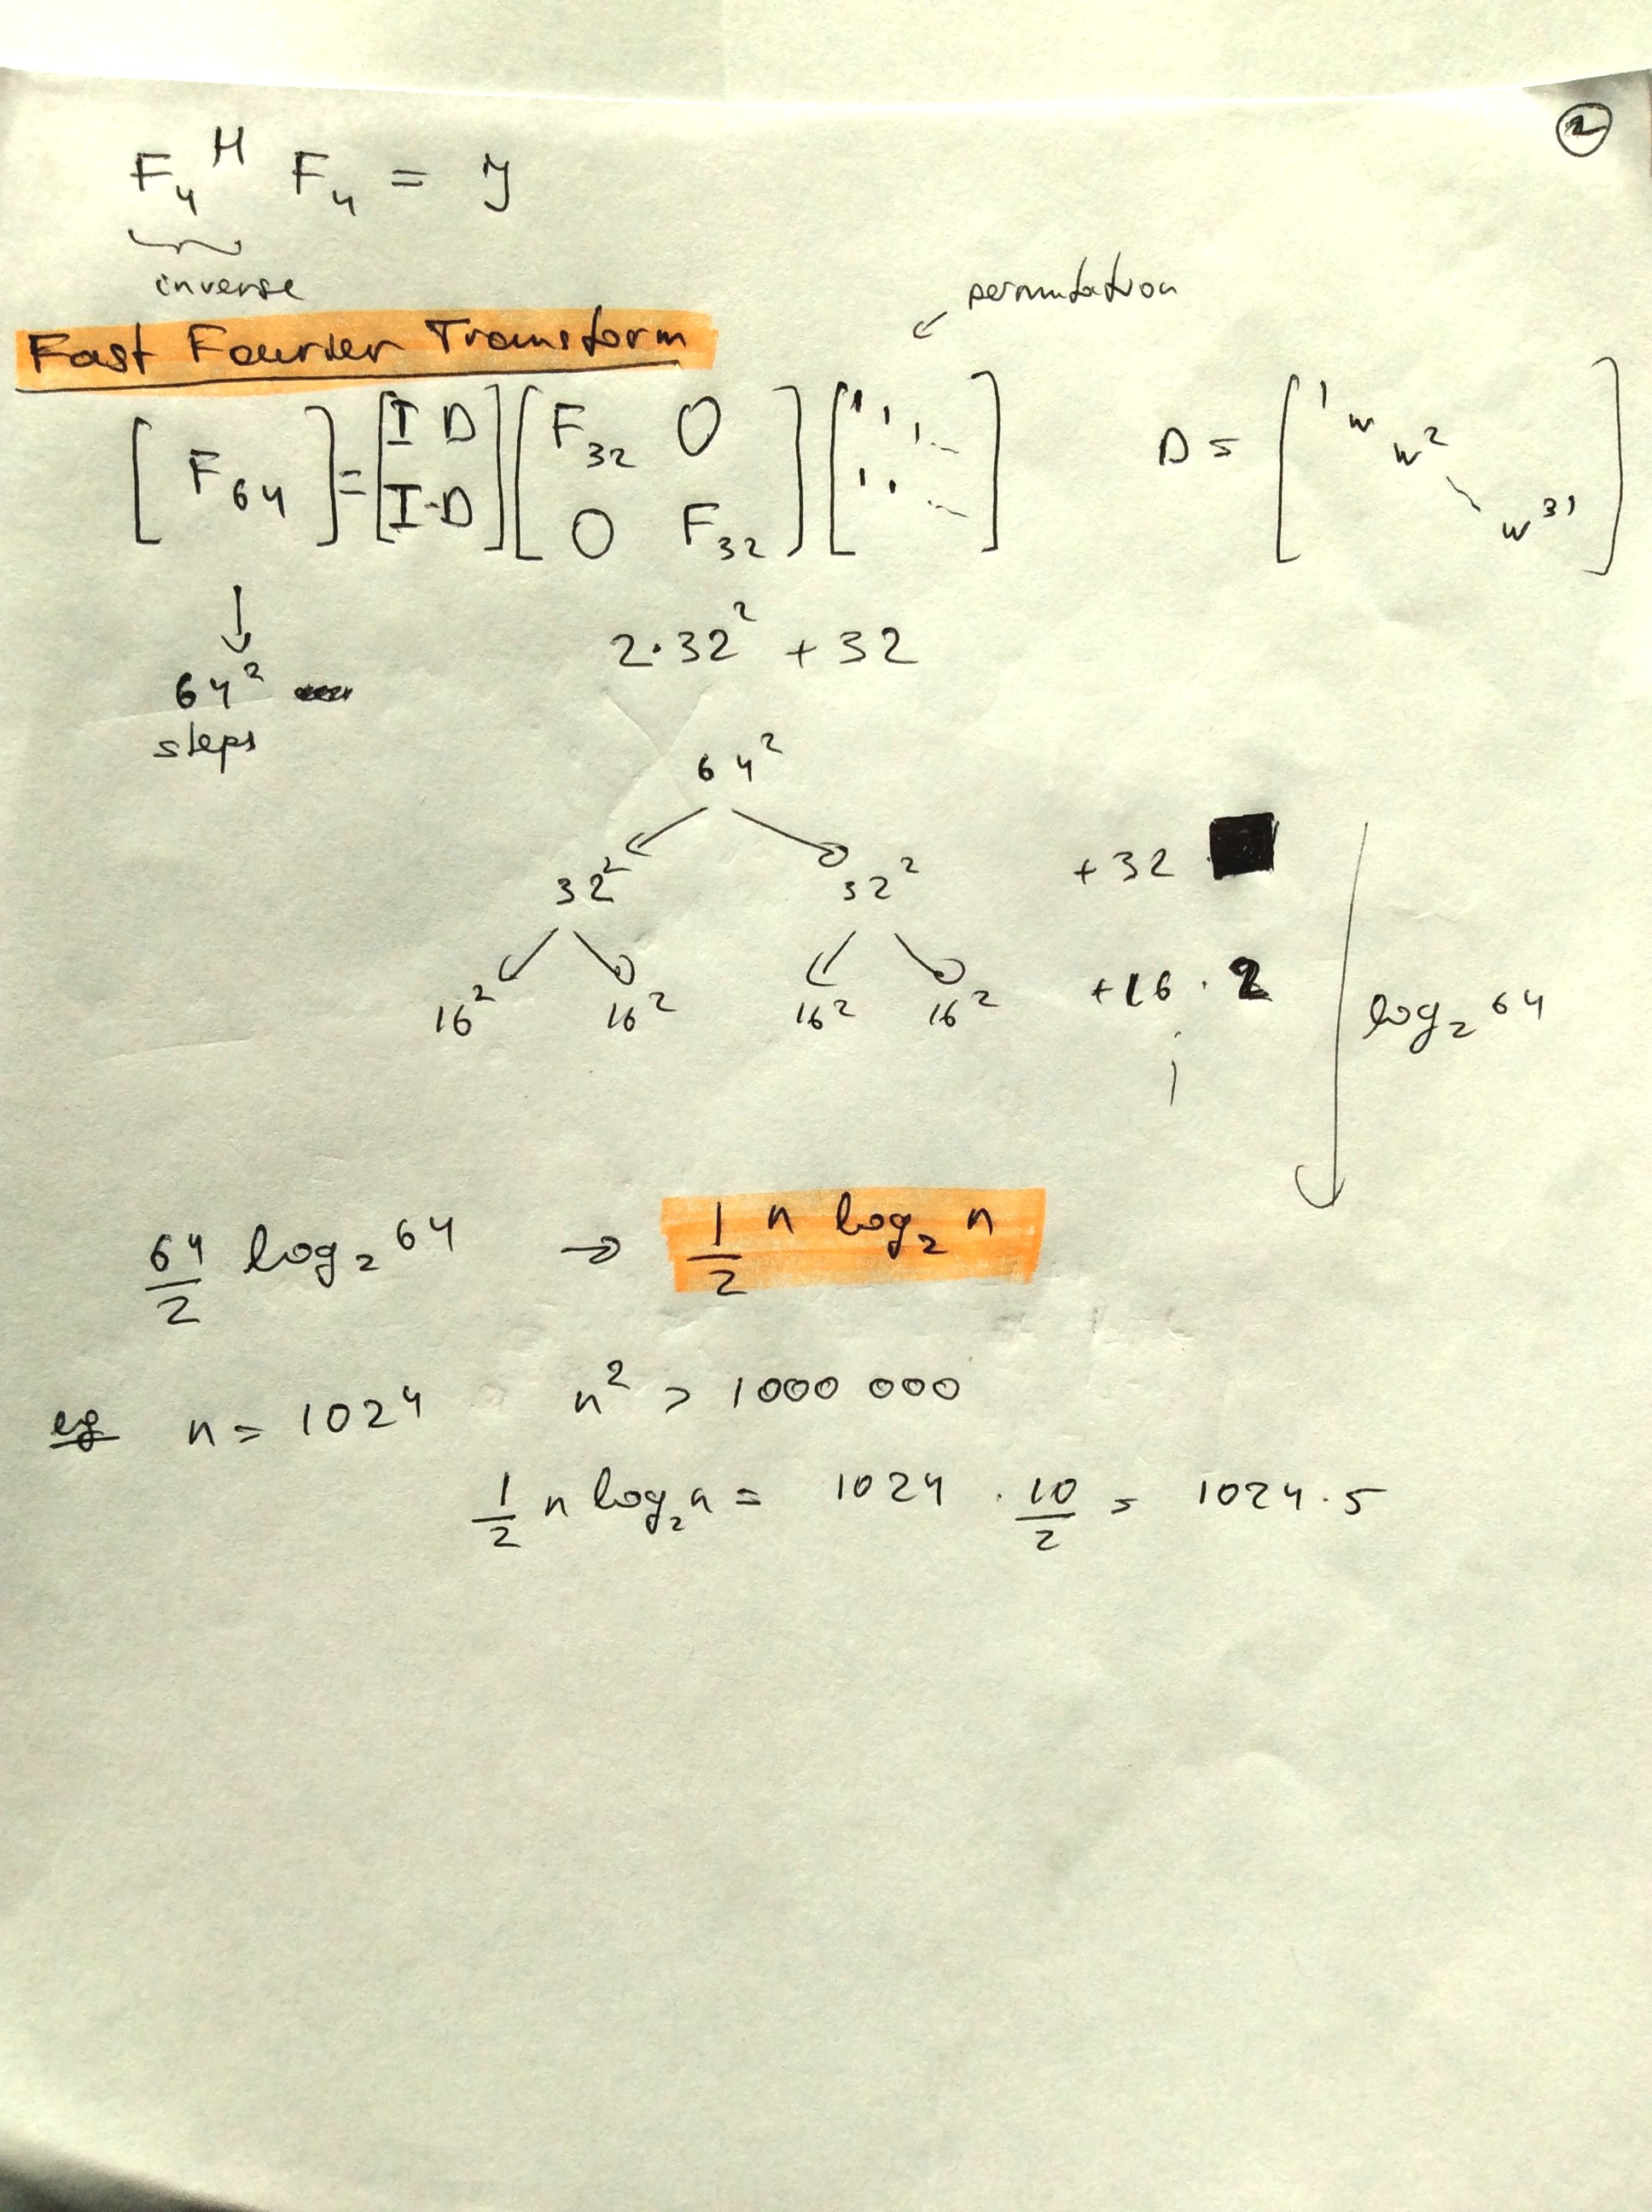 ②
F₄ᴴ F₄ = I
inverse
permutation
Fast Fourier Transform
[ F₆₄ ] = [ I D ; I -D ] [ F₃₂ O ; O F₃₂ ] [ 1 1 1 ... ; 1 1 ... ] D = [ 1 w w² \ w³¹ ]
64² steps
2·32² + 32
64²
32² 32² +32
16² 16² 16² 16² +16 · 2
log₂ 64
64/2 log₂ 64 → 1/2 n log₂ n
eg n = 1024 n² > 1000 000
1/2 n log₂ n = 1024 · 10/2 = 1024 · 5